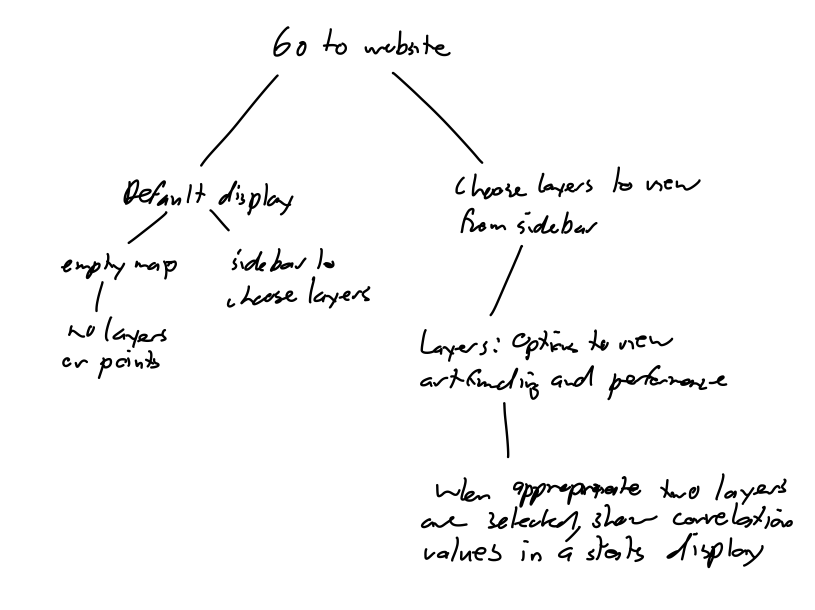 Go to website
Default display
empty map
no layers
or points
sidebar to
choose layers
Choose layers to view
from sidebar
Layers: options to view
art funding and performance
when appropriate two layers
are selected, show correlation
values in a stats display